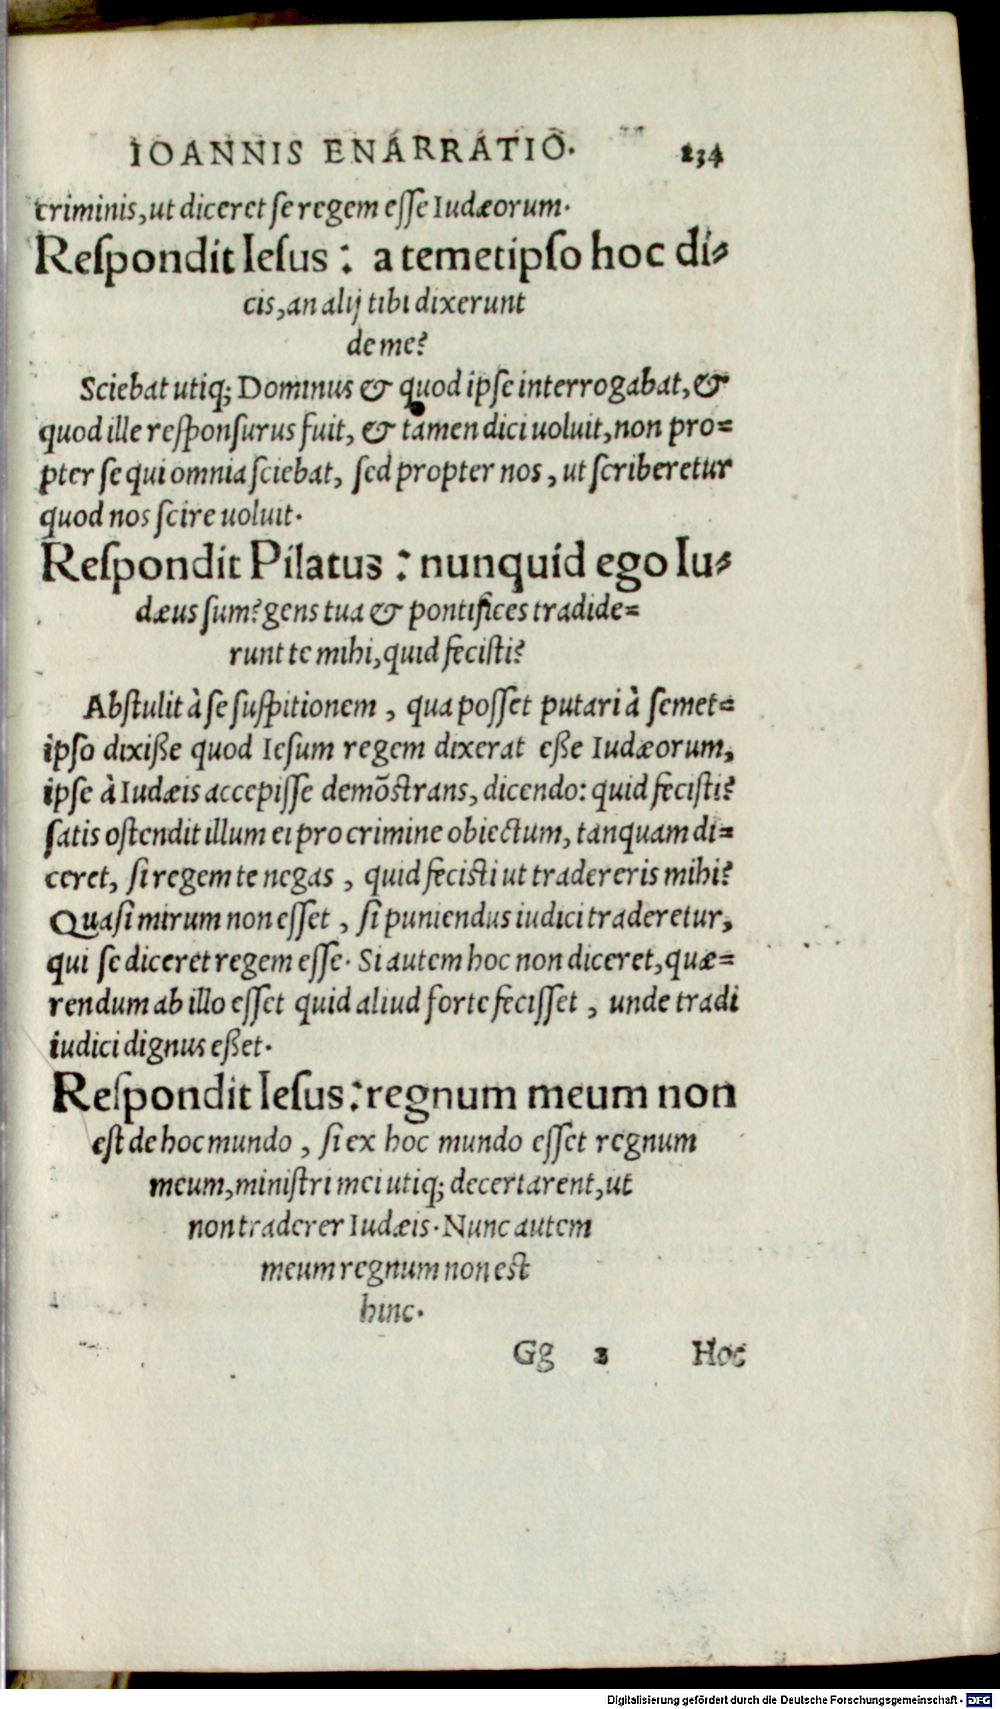 IOANNIS ENARRATIO. 234
criminis, ut diceret se regem esse Iudæorum.
Respondit Iesus: a temetipso hoc di-
cis, an alij tibi dixerunt
de me?
Sciebat utiq; Dominus & quod ipse interrogabat, &
quod ille responsurus fuit, & tamen dici uoluit, non pro=
pter se qui omnia sciebat, sed propter nos, ut scriberetur
quod nos scire uoluit.
Respondit Pilatus: nunquid ego Iu-
dæus sum? gens tua & pontifices tradide=
runt te mihi, quid fecisti?
Abstulit à se suspitionem, qua posset putari à semet=
ipso dixiße quod Iesum regem dixerat eße Iudæorum,
ipse à Iudæis accepisse demõstrans, dicendo: quid fecisti?
satis ostendit illum ei pro crimine obiectum, tanquam di=
ceret, si regem te negas, quid fecisti ut tradereris mihi?
Quasi mirum non esset, si puniendus iudici traderetur,
qui se diceret regem esse. Si autem hoc non diceret, quæ=
rendum ab illo esset quid aliud forte fecisset, unde tradi
iudici dignus eßet.
Respondit Iesus: regnum meum non
est de hoc mundo, si ex hoc mundo esset regnum
meum, ministri mei utiq; decertarent, ut
non traderer Iudæis. Nunc autem
meum regnum non est
hinc.
Gg 2 Hoc
Digitalisierung gefördert durch die Deutsche Forschungsgemeinschaft - DFG